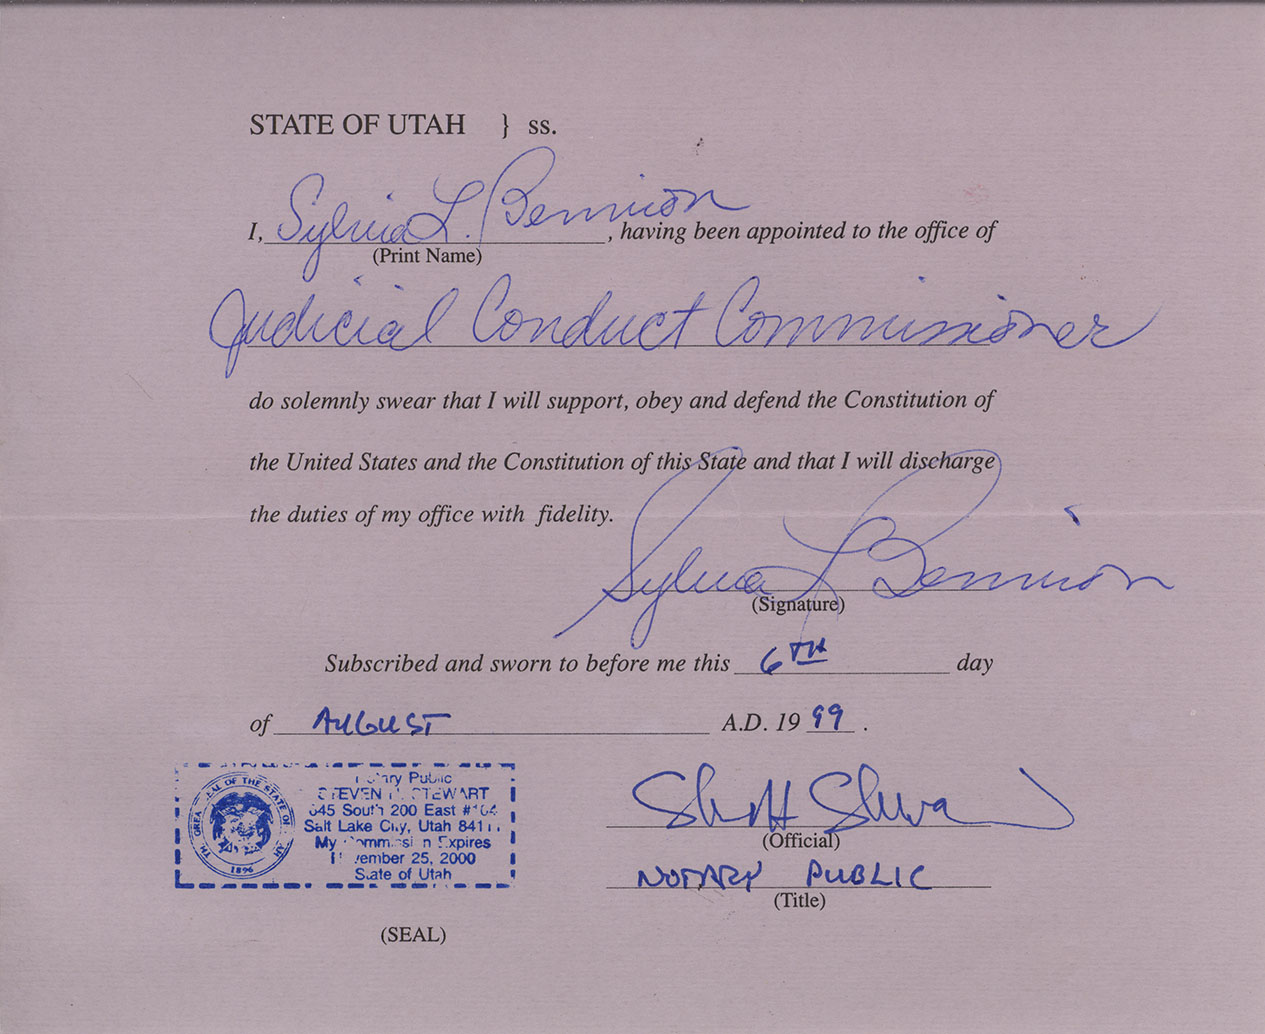 STATE OF UTAH } ss.
I, Sylvia L. Bennion, having been appointed to the office of
(Print Name)
Judicial Conduct Commissioner
do solemnly swear that I will support, obey and defend the Constitution of
the United States and the Constitution of this State and that I will discharge
the duties of my office with fidelity.
Sylvia L Bennion
(Signature)
Subscribed and sworn to before me this 6TH day
of AUGUST A.D. 19 99 .
Public
STEVEN STEWART
South 200 East
Salt Lake City, Utah
My Expires
25, 2000
State of Utah
SEAL OF THE STATE OF
1896
(Official)
NOTARY PUBLIC
(Title)
(SEAL)